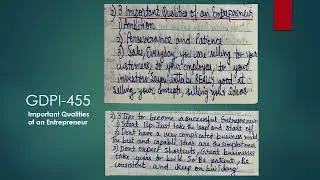 GDPI-455
Important Qualties
of an Entrepreneur
2) 3 Important Qualities of an Entrepreneur
1) Ambition
2) Perseverance and Patience
3) Sales, Everyday you are selling to your
customers, to your employees, to your
investors. So you gotta be REALLY good at
selling your concept, selling your ideas
2) 3 Tips to become a successful Entrepreneur
1) Start Up, Just take the leap and start off
2) Dont have a very complicated business model
The best and capable Ideas are the simplest
3) Dont expect Shortcuts, Great businesses
take years to build. So Be patient, be
consistent and keep on building